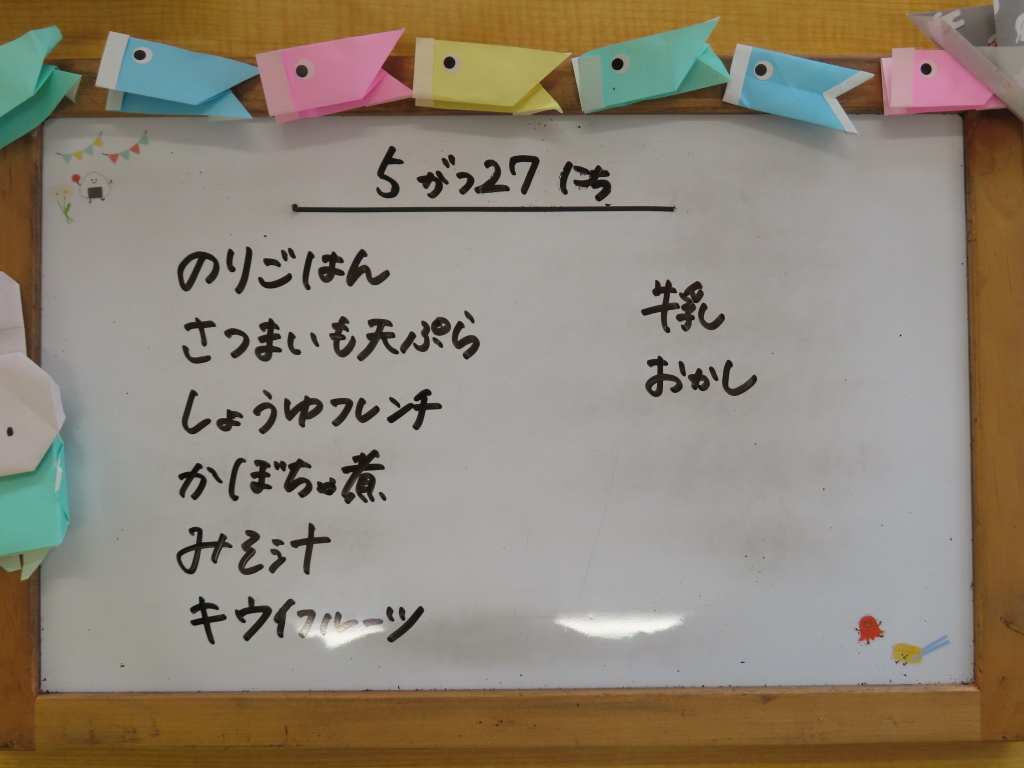 5がつ27にち
のりごはん
さつまいも天ぷら
しょうゆフレンチ
かぼちゃ煮
みそ汁
キウイフルーツ
牛乳
おかし